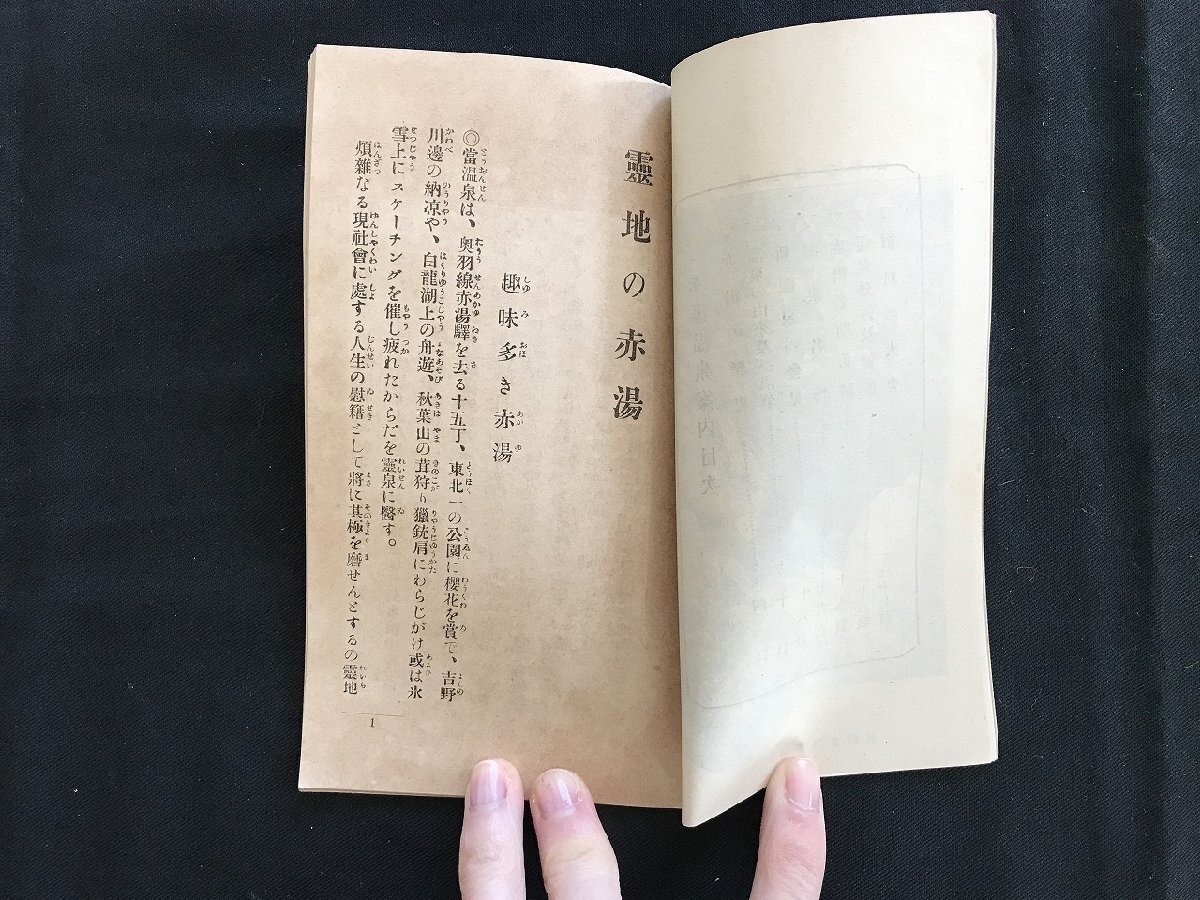 靈地の赤湯
趣味多き赤湯
◎當溫泉は、奧羽線赤湯驛を去る十五丁、東北一の公園に櫻花を賞で、吉野
川邊の納凉や、白龍湖上の舟遊、秋葉山の茸狩り獵銃肩にわらじがけ或は氷
雪上にスケーチングを催し疲れたからだを靈泉に醫す。
煩雜なる現社會に處する人生の慰藉として將に其極を磨せんとするの靈地
1